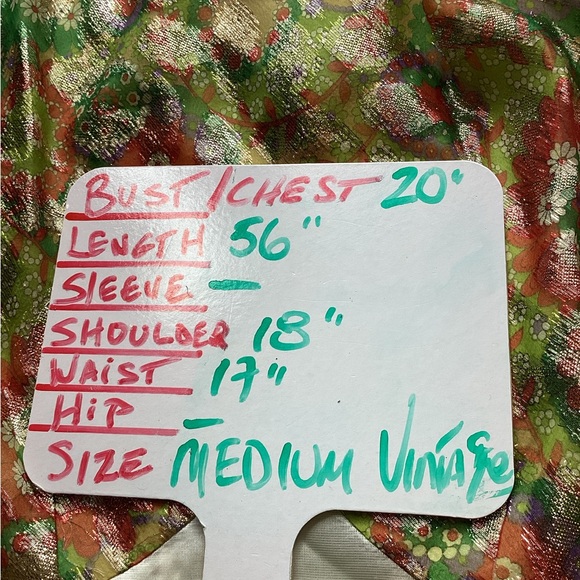 BUST/CHEST 20"
LENGTH 56"
SLEEVE —
SHOULDER 18"
WAIST 17"
HIP —
SIZE MEDIUM VINTAGE